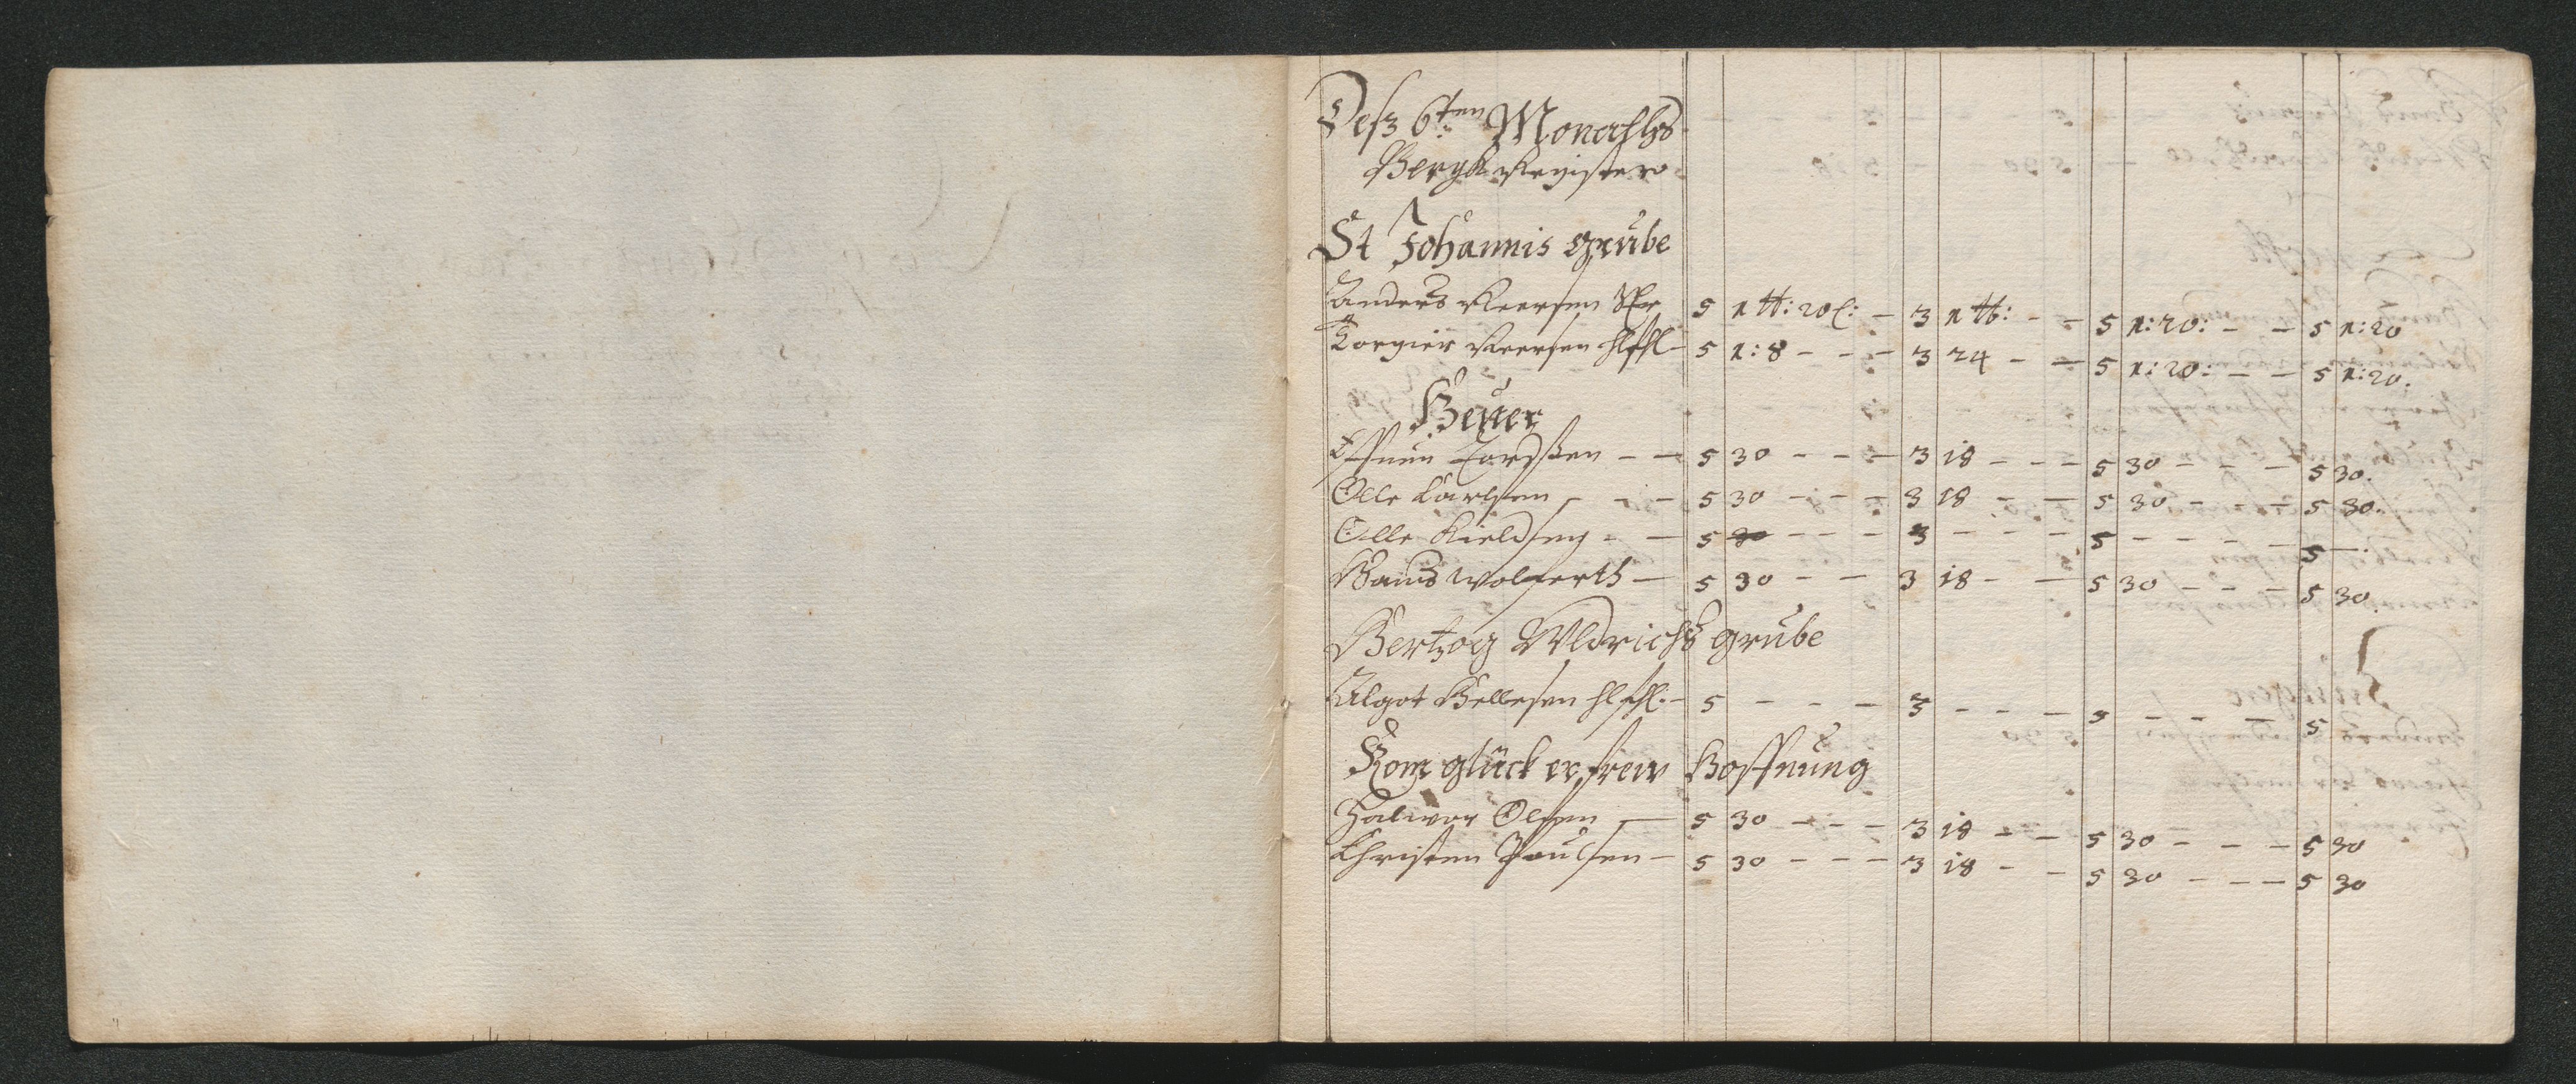 Deß 6ten Monachβ
Bergk Register
St Johannis grube
Anders Fleersen 5 1 tt: 20 ß: – 3 1 tt: – – 5 1: 20: – – 5 1: 20
Torgier Fleersen hlfft – 5 1: 8 – – – 3 24 – – 5 1: 20: – – 5 1: 20.
Heüer
Torβsen – – 5 30 – – – 3 18 – – – 5 30 – – – 5 30.
Olle Carlsen – – – 5 30 – – – 3 18 – – 5 30 – – – 5 30.
Olle Kieldsen – – 5 30 – – – 3 – – – 5 – – – – 5 –.
Hans Wolferth – 5 30 – – 3 18 – – 5 30 – – – 5 30.
Hertzog Uldrichß grube
Algot Hellesen hlfft: – 5 – – – 3 – – – 5 – – – 5
Kom glück erfrew Hoffnung
Halwor Olsen – 5 30 – – – 3 18 – – 5 30 – – – 5 30
Christen Poulsen – 5 30 – – – 3 18 – – 5 30 – – – 5 30